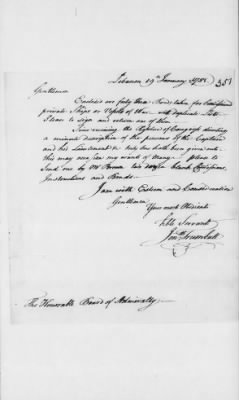 Lebanon 19th January 1781
351
Gentlemen
Enclosed are forty three Bonds taken for Commissioned
private Ships or Vessels of War with duplicate Lists
Please to sign and return one of them
Since receiving the Resolve of Congress directing
a minute description of the persons of the Captain
and his Lieutenants &c only two hath been given into
this may see one minute of many. Please to
Send me by Mr Brown two dozen blank Commissions
Instructions and Bonds.
I am with Esteem and Consideration
Gentlemen
Your most Obedient
hble Servant
Jonth Trumbull
The Honorable Board of Admiralty